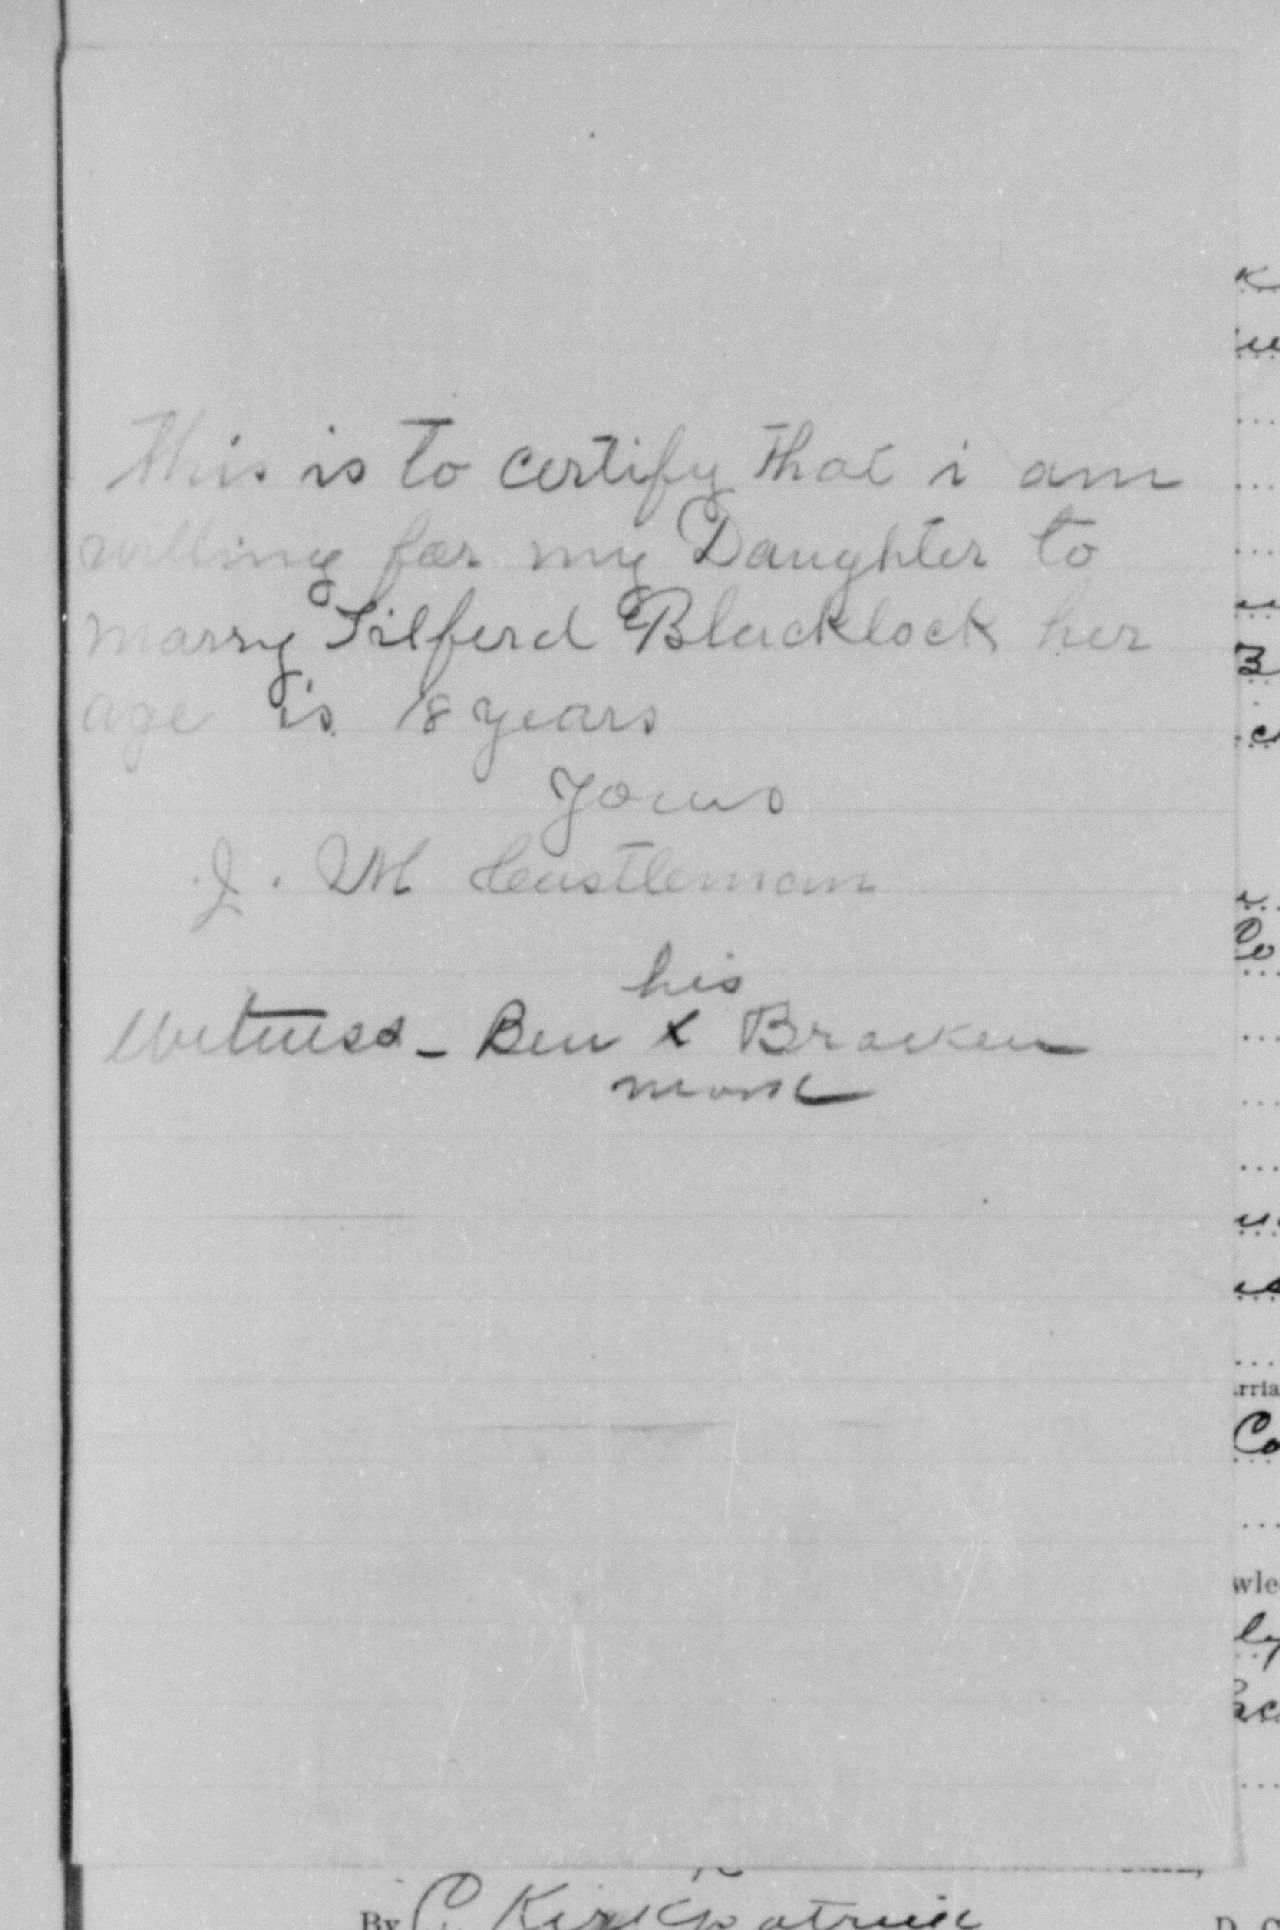 This is to certify that i am
willing for my Daughter to
marry Tilferd Blacklock her
age is 18 years
yours
J. M Castleman
his
Witness - Ben X Bracken
mark
By C. Kirkpatrick